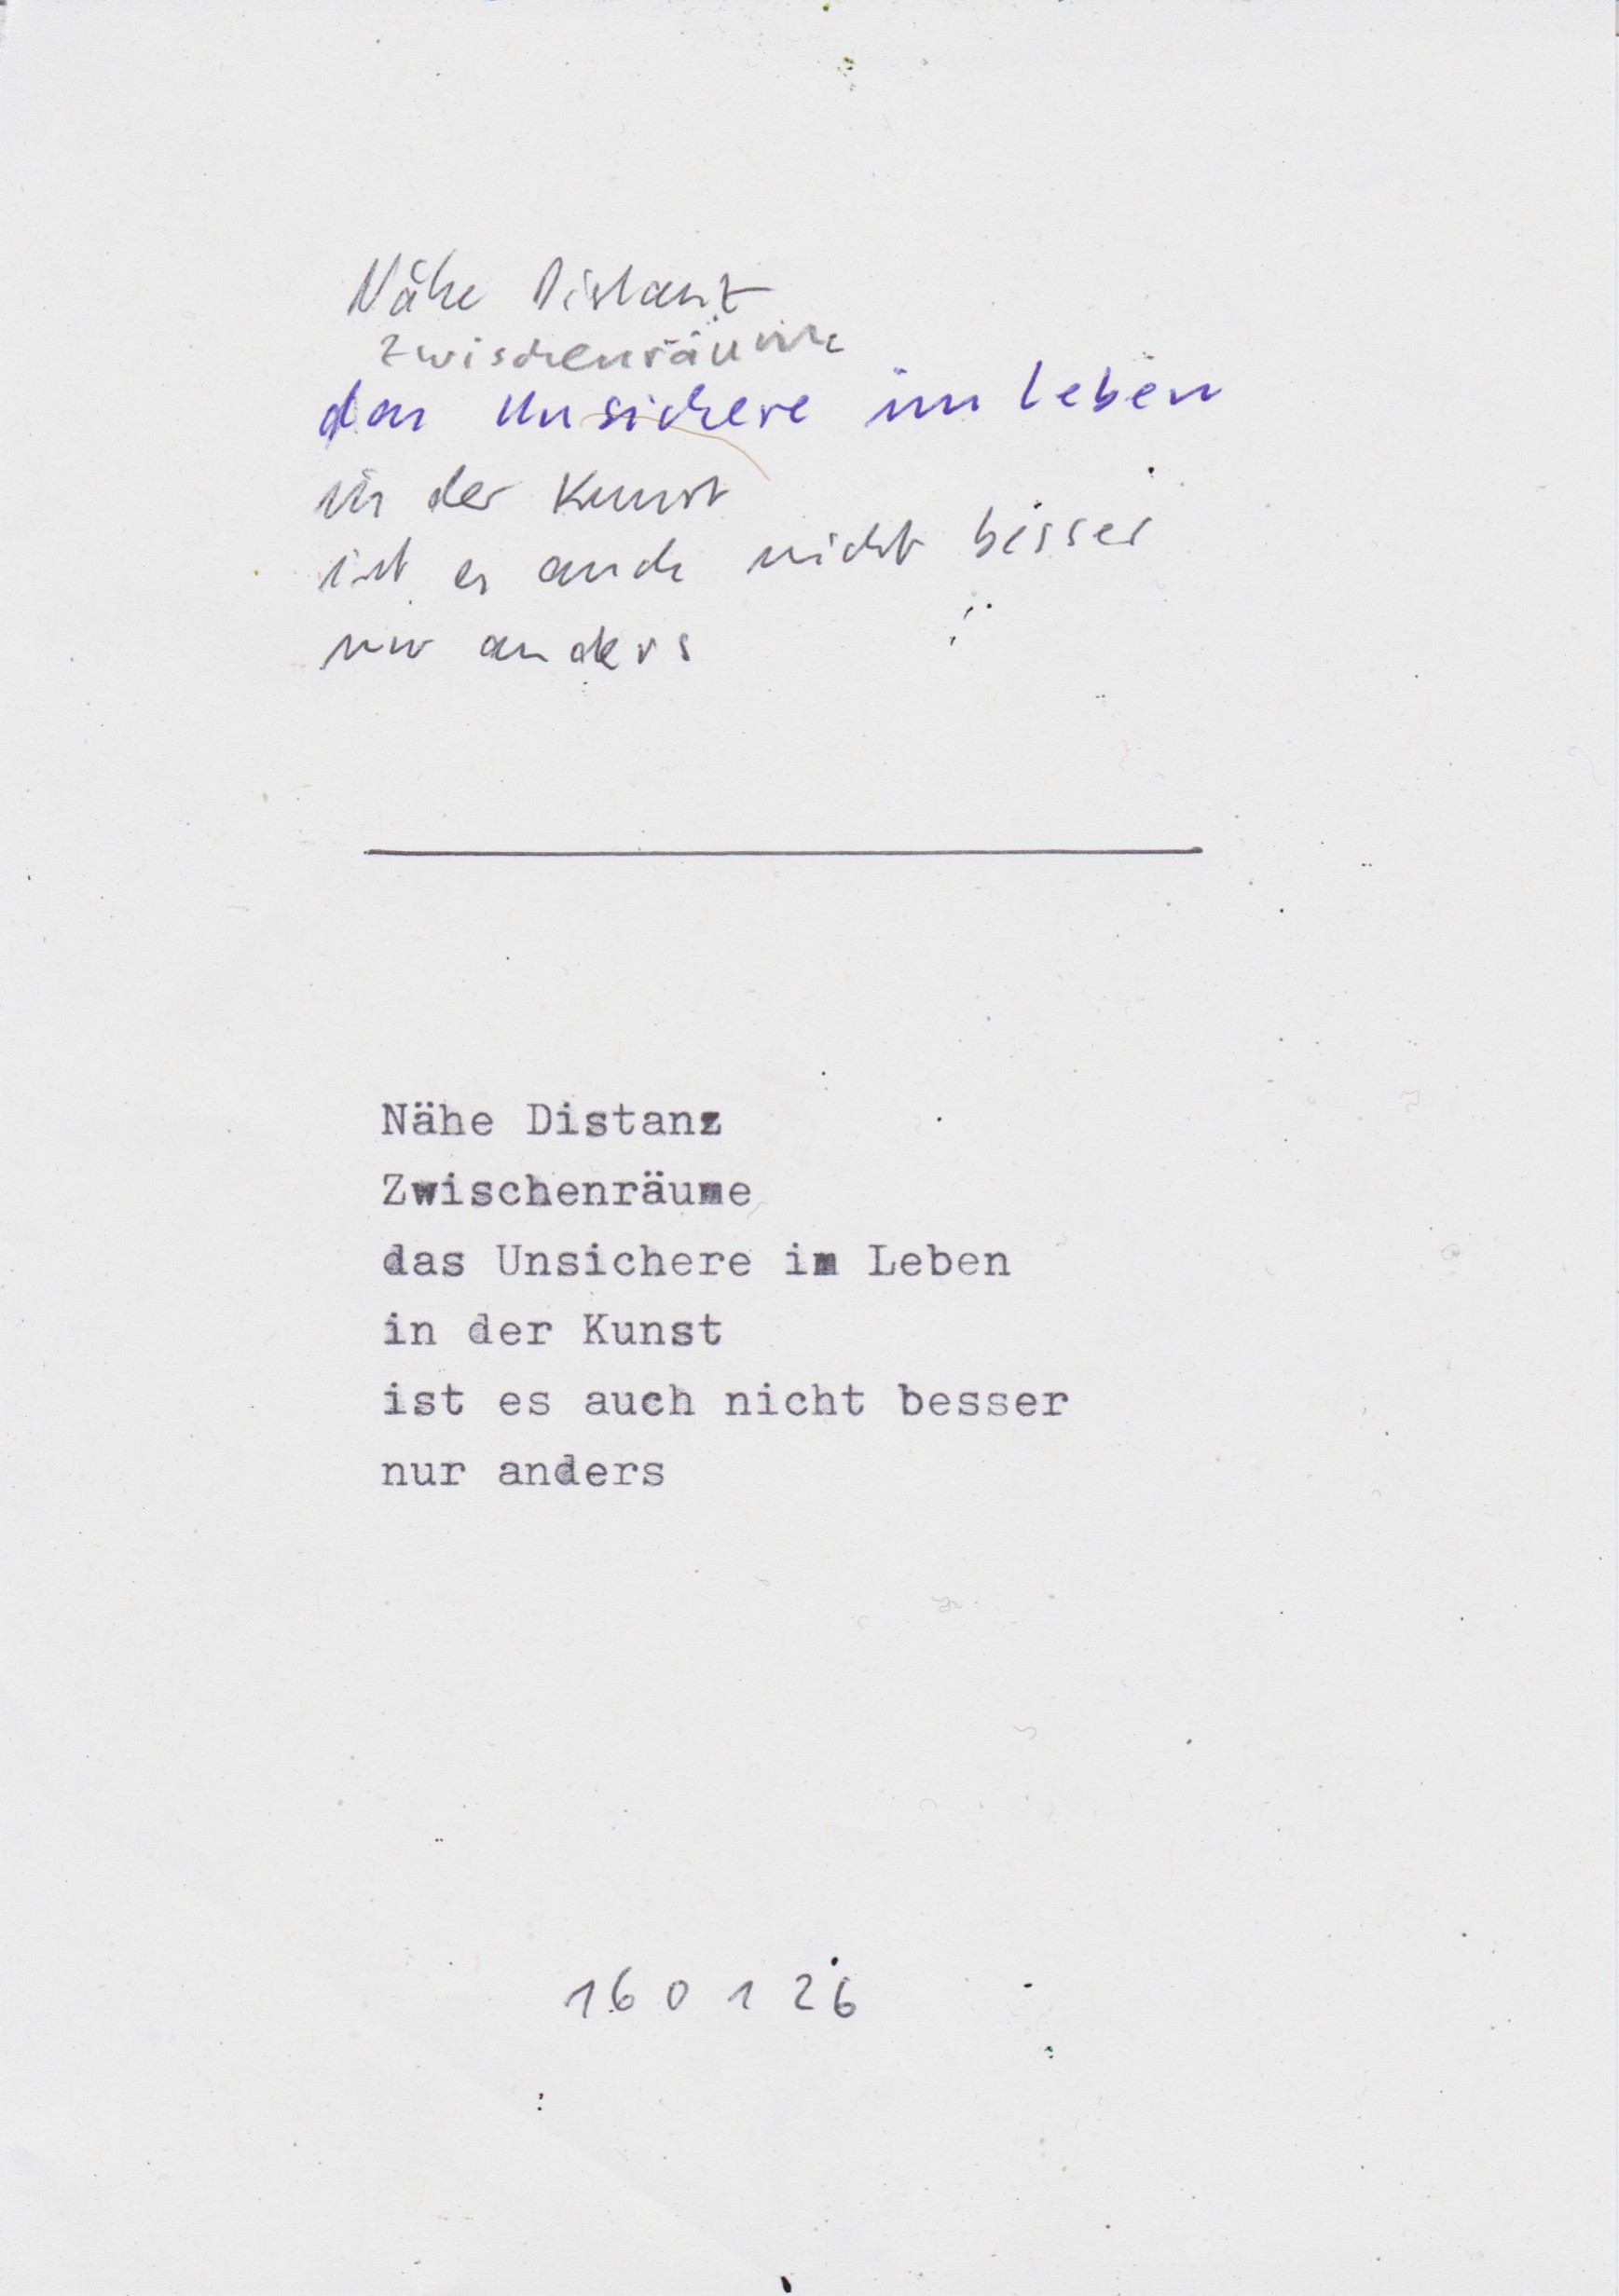 Nähe Distanz
Zwischenräume
das Unsichere im Leben
in der Kunst
ist es auch nicht besser
nur anders
Nähe Distanz
Zwischenräume
das Unsichere im Leben
in der Kunst
ist es auch nicht besser
nur anders
160126